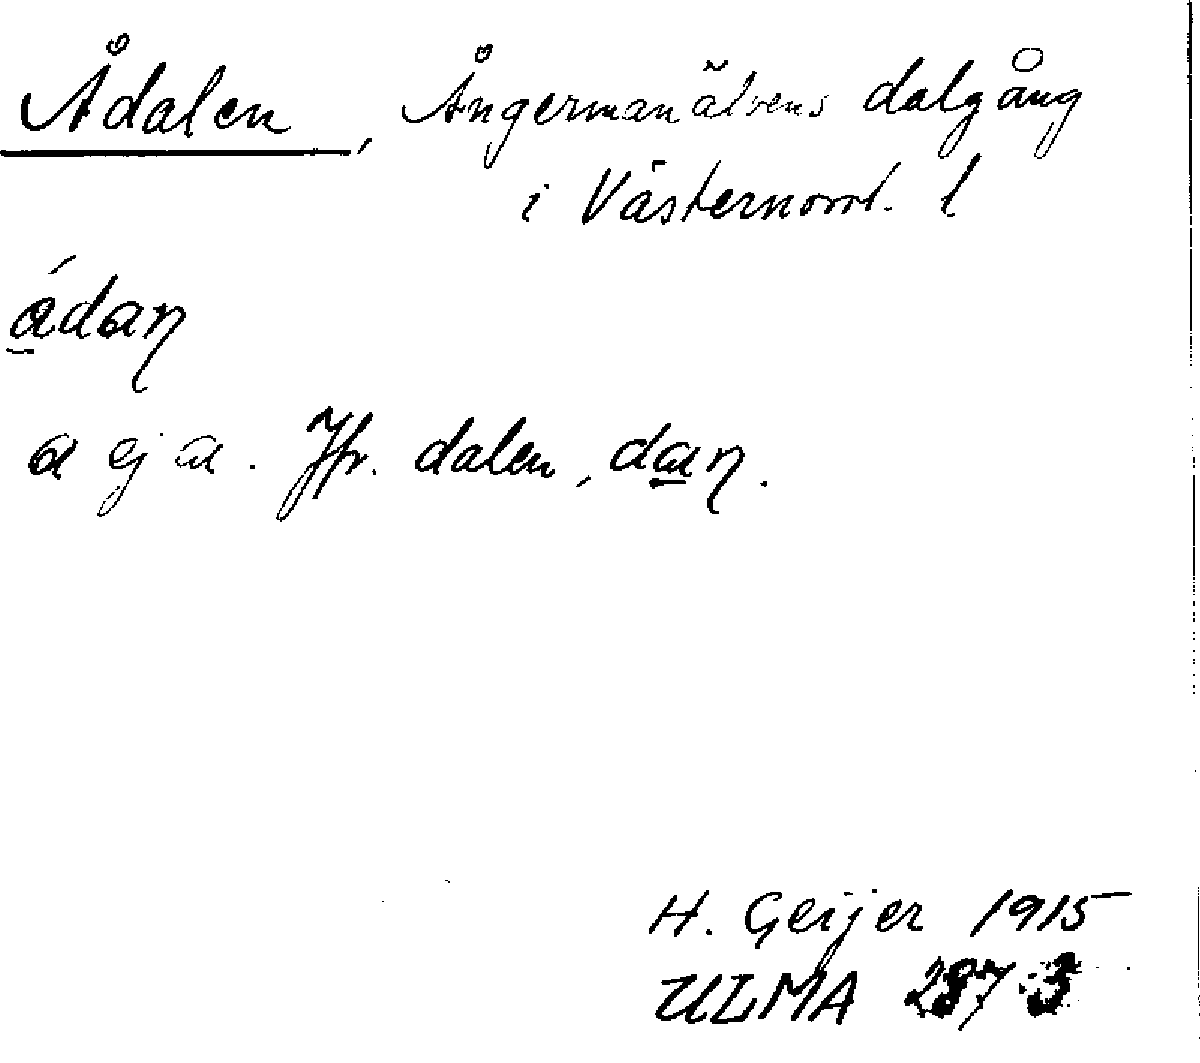 Ådalen, Ångermanälvens dalgång
i Västernorrl. l
ádaŋ
a ej a. Jfr. dalen, daŋ.
H. Geijer 1915
ULMA 287:3